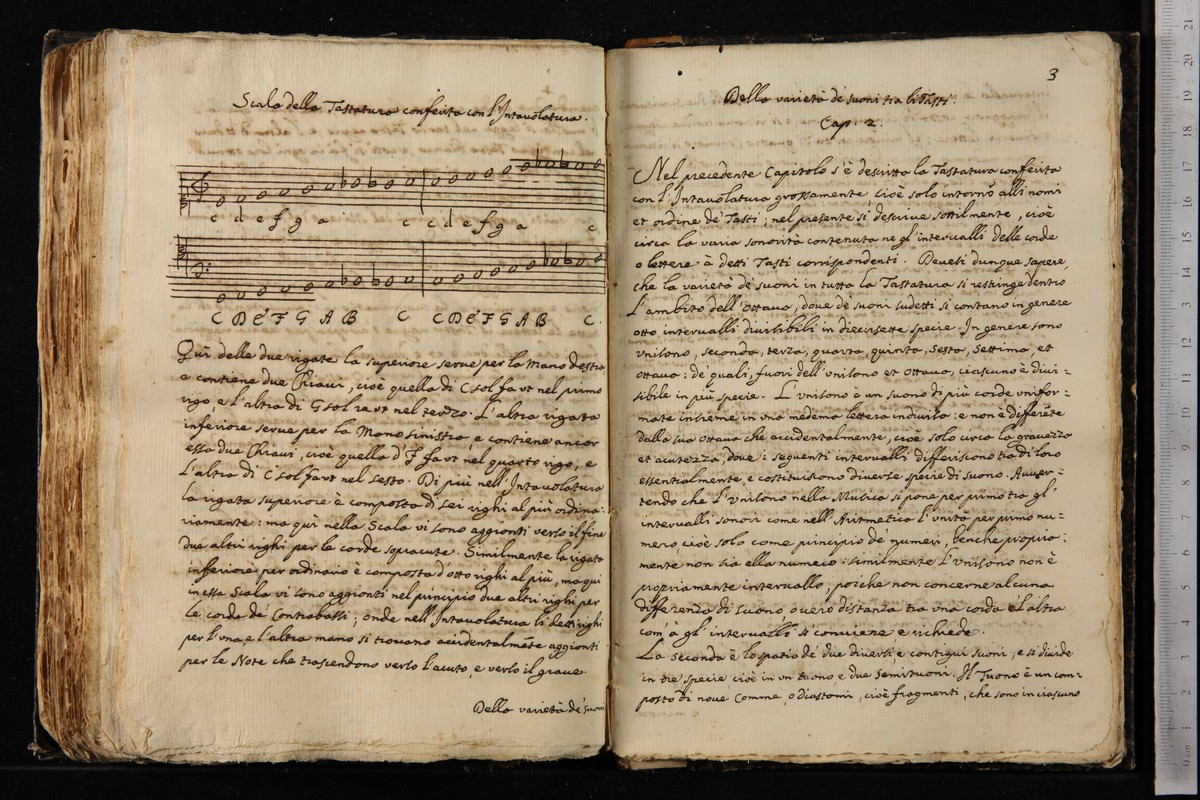 Scala della Tastatura conferita con l'Intavolatura.
c d e f g a c c d e f g a c
C D E F G A B C C D E F G A B C.
Quì delle due rigate la superiore serue per la Mano destra
e contiene due Chiaui, cioè quella di C sol fa vt nel primo
rigo, e l'altra di G sol re vt nel terzo. L'altra rigata
inferiore serue per la Mano sinistra e contiene ancor
essa due Chiaui, cioè quella d'F fa vt nel quarto rigo, e
l'altra di C sol fa vt nel sesto. Di più nell'Intauolatura
la rigata superiore è composta di sei righi al più ordina:
riamente: ma quì nella Scala vi sono aggionti verso il fine
due altri righi per le corde sopracute. Similmente la rigata
inferiore per ordinario è composta d'otto righi al più, ma qui
in essa Scala vi sono aggionti nel principio due altri righi per
le corde de' Contrabassi; onde nell'Intauolatura li detti righi
per l'vna, e l'altra mano si trouano accidentalmẽte aggionti
per le Note che trascendono verso l'acuto, e verso il graue.
Della varietà de' suoni
3
Della varietà de' suoni tra li Tasti.
Cap. 2.
Nel precedente Capitolo s'è descritta la Tastatura conferita
con l'Intauolatura grossamente cioè solo intorno alli nomi
et ordine de' Tasti; nel presente si descriue sottilmente, cioè
circa la varia sonorità contenuta ne gl'interualli delle corde
o lettere à detti Tasti corrispondenti. Deuesi dunque sapere,
che la varietà de' suoni in tutta la Tastatura si restringe dentro
l'ambito dell'ottaua, doue de' suoni sudetti si contano in genere
otto interualli diuisibili in diecisette specie. In genere sono
vnisono, seconda, terza, quarta, quinta, sesta, settima, et
ottaua: de' quali, fuori dell'vnisono et ottaua, ciascuno è diui:
sibile in più specie. L'vnisono è un suono di più corde vnifor:
mate insieme in vna medema lettera indiuisa: e non è differẽte
dalla sua ottaua che accidentalmente, cioè solo circa la grauezza
et acutezza, doue i seguenti interualli differiscono tra di loro
essentialmente, e costituiscono diuerse specie di suono. Auuer:
tendo che l'vnisono nella Musica si pone per primo tra gl'
interualli sonori come nell'Aritmetica l'vnità per primo nu:
mero, cioè solo come principio de numeri, benche propria:
mente non sia ella numero: similmente l'vnisono non è
propriamente interuallo, poiche non concerne alcuna
differenza di suono ouero distanza tra vna corda e l'altra
com'à gl'interualli si conuiene e richiede.
La Seconda è lo spatio de' due diuersi, e contigui suoni, e si diuide
in tre specie cioè in vn tuono, e due Semituoni. Il Tuono è un com:
posto di noue Comme, o diastomi, cioè fragmenti, che sono in ciascuno